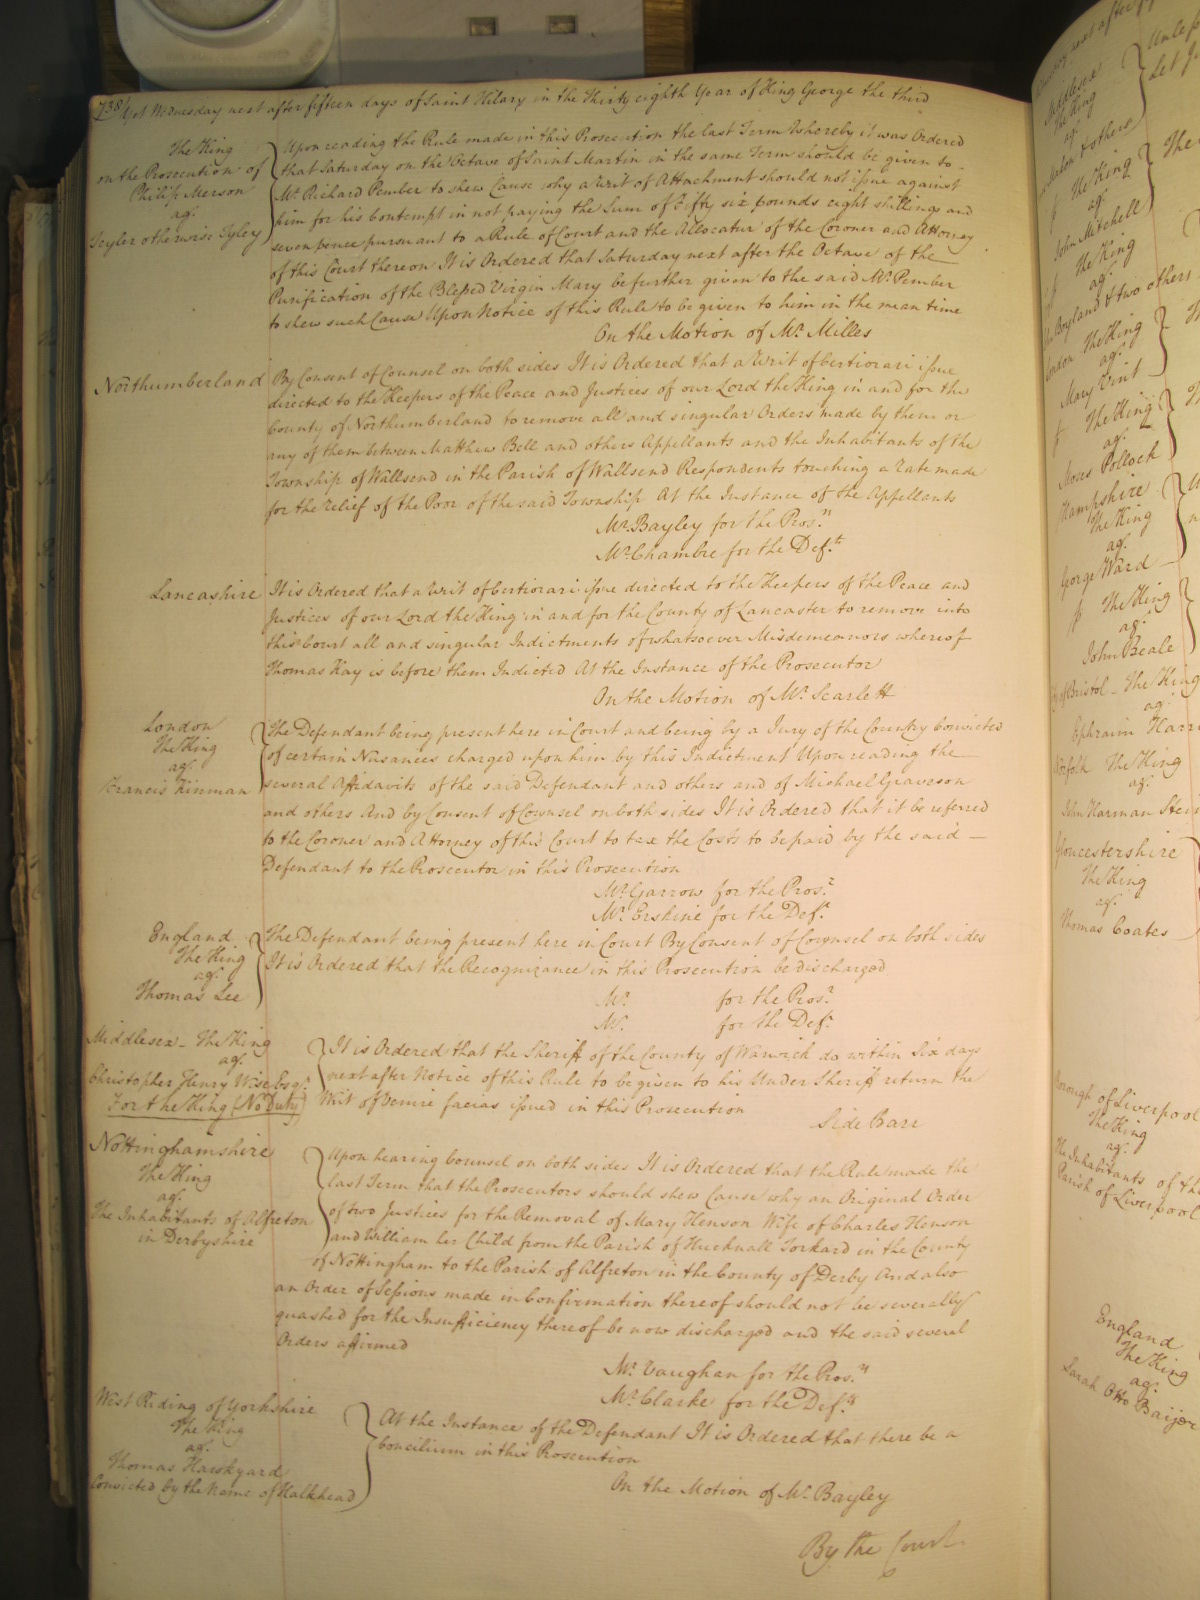 738 Yet Wednesday next after fifteen days of Saint Hilary in the Thirty eighth Year of King George the third
The King
on the Prosecution of
Philip Merson
agt.
Teyler otherwise Tyley
Upon reading the Rule made in this Prosecution the last Term Whereby it was Ordered
that Saturday on the Octave of Saint Martin in the same Term should be given to
Mr. Richard Pember to shew Cause why a Writ of Attachment should not issue against
him for his Contempt in not paying the Sum of Fifty six pounds eight shillings and
seven pence pursuant to a Rule of Court and the Allocatur of the Coroner and Attorney
of this Court thereon It is Ordered that Saturday next after the Octave of the
Purification of the Blessed Virgin Mary be further given to the said Mr. Pember
to shew such Cause Upon Notice of this Rule to be given to him in the mean time
On the Motion of Mr. Milles
Northumberland
By Consent of Counsel on both sides It is Ordered that a Writ of Certiorari issue
directed to the Keepers of the Peace and Justices of our Lord the King in and for the
County of Northumberland to remove all and singular Orders made by them or
any of them between Matthew Bell and others Appellants and the Inhabitants of the
Township of Wallsend in the Parish of Wallsend Respondents touching a Rate made
for the relief of the Poor of the said Township At the Instance of the Appellants
Mr. Bayley for the Pros.rs
Mr. Chambre for the Def.ts
Lancashire
It is Ordered that a Writ of Certiorari issue directed to the Keepers of the Peace and
Justices of our Lord the King in and for the County of Lancaster to remove into
this Court all and singular Indictments of whatsoever Misdemeanors whereof
Thomas Kay is before them Indicted At the Instance of the Prosecutor
On the Motion of Mr. Scarlett
London
The King
agt.
Francis Kinman
The Defendant being present here in Court and being by a Jury of the Country Convicted
of certain Nusances charged upon him by this Indictment Upon reading the
several Affidavits of the said Defendant and others and of Michael Graveson
and others And by Consent of Counsel on both sides It is Ordered that it be referred
to the Coroner and Attorney of this Court to tax the Costs to be paid by the said
Defendant to the Prosecutor in this Prosecution
Mr. Garrow for the Pros.r
Mr. Erskine for the Def.t
England
The King
agt.
Thomas Lee
The Defendant being present here in Court By Consent of Counsel on both sides
It is Ordered that the Recognizance in this Prosecution be discharged
Mr. for the Pros.r
Mr. for the Def.t
Middlesex - The King
agt.
Christopher Henry Wise Esq.r
For the King (No Duty)
It is Ordered that the Sheriff of the County of Warwick do within Six days
next after Notice of this Rule to be given to his Under Sheriff return the
Writ of Venire facias issued in this Prosecution
Side Barr
Nottinghamshire
The King
agt.
The Inhabitants of Alfreton
in Derbyshire
Upon hearing Counsel on both sides It is Ordered that the Rule made the
last Term that the Prosecutors should shew Cause why an Original Order
of two Justices for the Removal of Mary Henson Wife of Charles Henson
and William her Child from the Parish of Hucknall Torkard in the County
of Nottingham to the Parish of Alfreton in the County of Derby And also
an Order of Sessions made in Confirmation thereof should not be severally
quashed for the Insufficiency thereof be now discharged and the said several
Orders affirmed
Mr. Vaughan for the Pros.rs
Mr. Clarke for the Def.ts
West Riding of Yorkshire
The King
agt.
Thomas Hawkyard
Convicted by the Name of Halkhead
At the Instance of the Defendant It is Ordered that there be a
Concilium in this Prosecution
On the Motion of Mr. Bayley
By the Court
Middlesex
The King
agt.
& others
The King
agt.
John Mitchell
The King
agt.
Boyland & two others
London The King
agt.
Mary Vint
The King
agt.
Moses Pollock
Hampshire
The King
agt.
George Ward
The King
agt.
John Beale
Bristol - The King
agt.
Ephraim
Norfolk The King
agt.
John Harman
Gloucestershire
The King
agt.
Thomas Coates
Borough of Liverpool
The King
agt.
The Inhabitants of the
Parish of Liverpool
England
The King
agt.
Sarah Otto Baijer